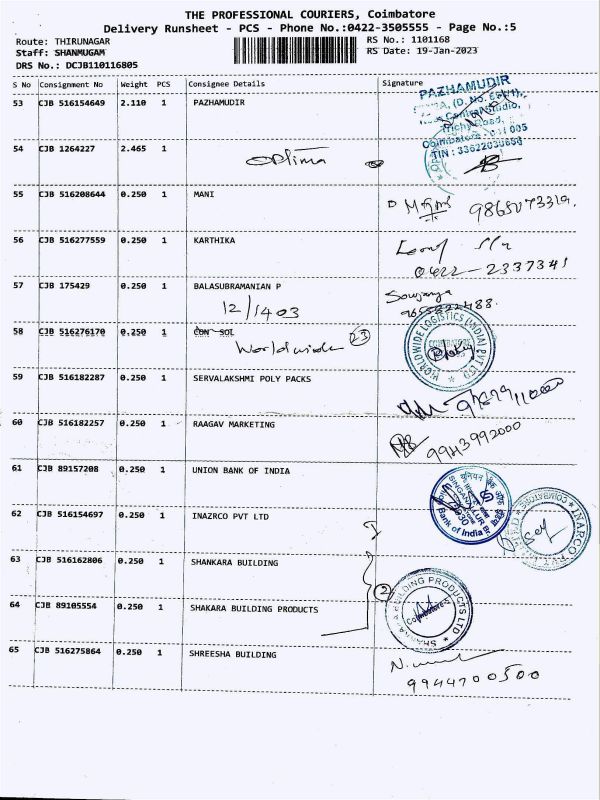 THE PROFESSIONAL COURIERS, Coimbatore
Delivery Runsheet - PCS - Phone No.:0422-3505555 - Page No.:5
Route: THIRUNAGAR RS No.: 1101168
Staff: SHANMUGAM RS Date: 19-Jan-2023
DRS No.: DCJB110116805
S No Consignment No Weight PCS Consignee Details Signature
53 CJB 516154649 2.110 1 PAZHAMUDIR
PAZHAMUDIR
Trichy Road,
Coimbatore - 641 005
54 CJB 1264227 2.465 1
Optima
55 CJB 516208644 0.250 1 MANI
56 CJB 516277559 0.250 1 KARTHIKA
0422-2337341
57 CJB 175429 0.250 1 BALASUBRAMANIAN P
12/1403
Soujanya
58 CJB 516276170 0.250 1 CON SOL
Worldwide 23
WORLDWIDE LOGISTICS (INDIA) PVT LTD
59 CJB 516182287 0.250 1 SERVALAKSHMI POLY PACKS
60 CJB 516182257 0.250 1 RAAGAV MARKETING
9943992000
61 CJB 89157208 0.250 1 UNION BANK OF INDIA
Bank of India
62 CJB 516154697 0.250 1 INAZRCO PVT LTD
63 CJB 516162806 0.250 1 SHANKARA BUILDING
2
64 CJB 89105554 0.250 1 SHAKARA BUILDING PRODUCTS
BUILDING PRODUCTS LTD
65 CJB 516275864 0.250 1 SHREESHA BUILDING
9944700500